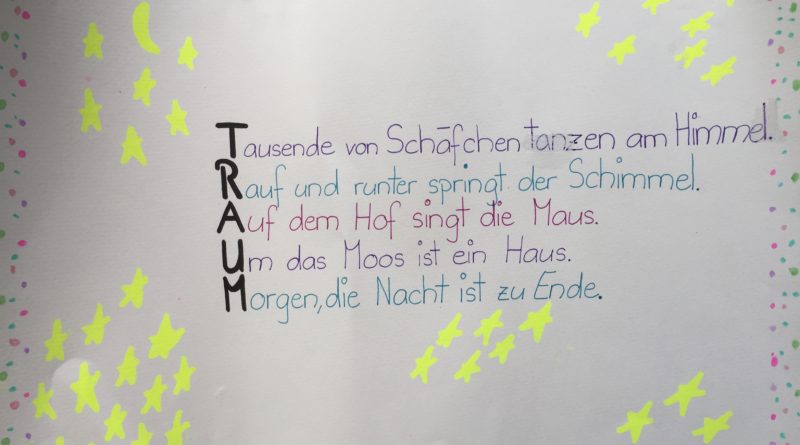 Tausende von Schäfchen tanzen am Himmel.
Rauf und runter springt der Schimmel.
Auf dem Hof singt die Maus.
Um das Moos ist ein Haus.
Morgen, die Nacht ist zu Ende.